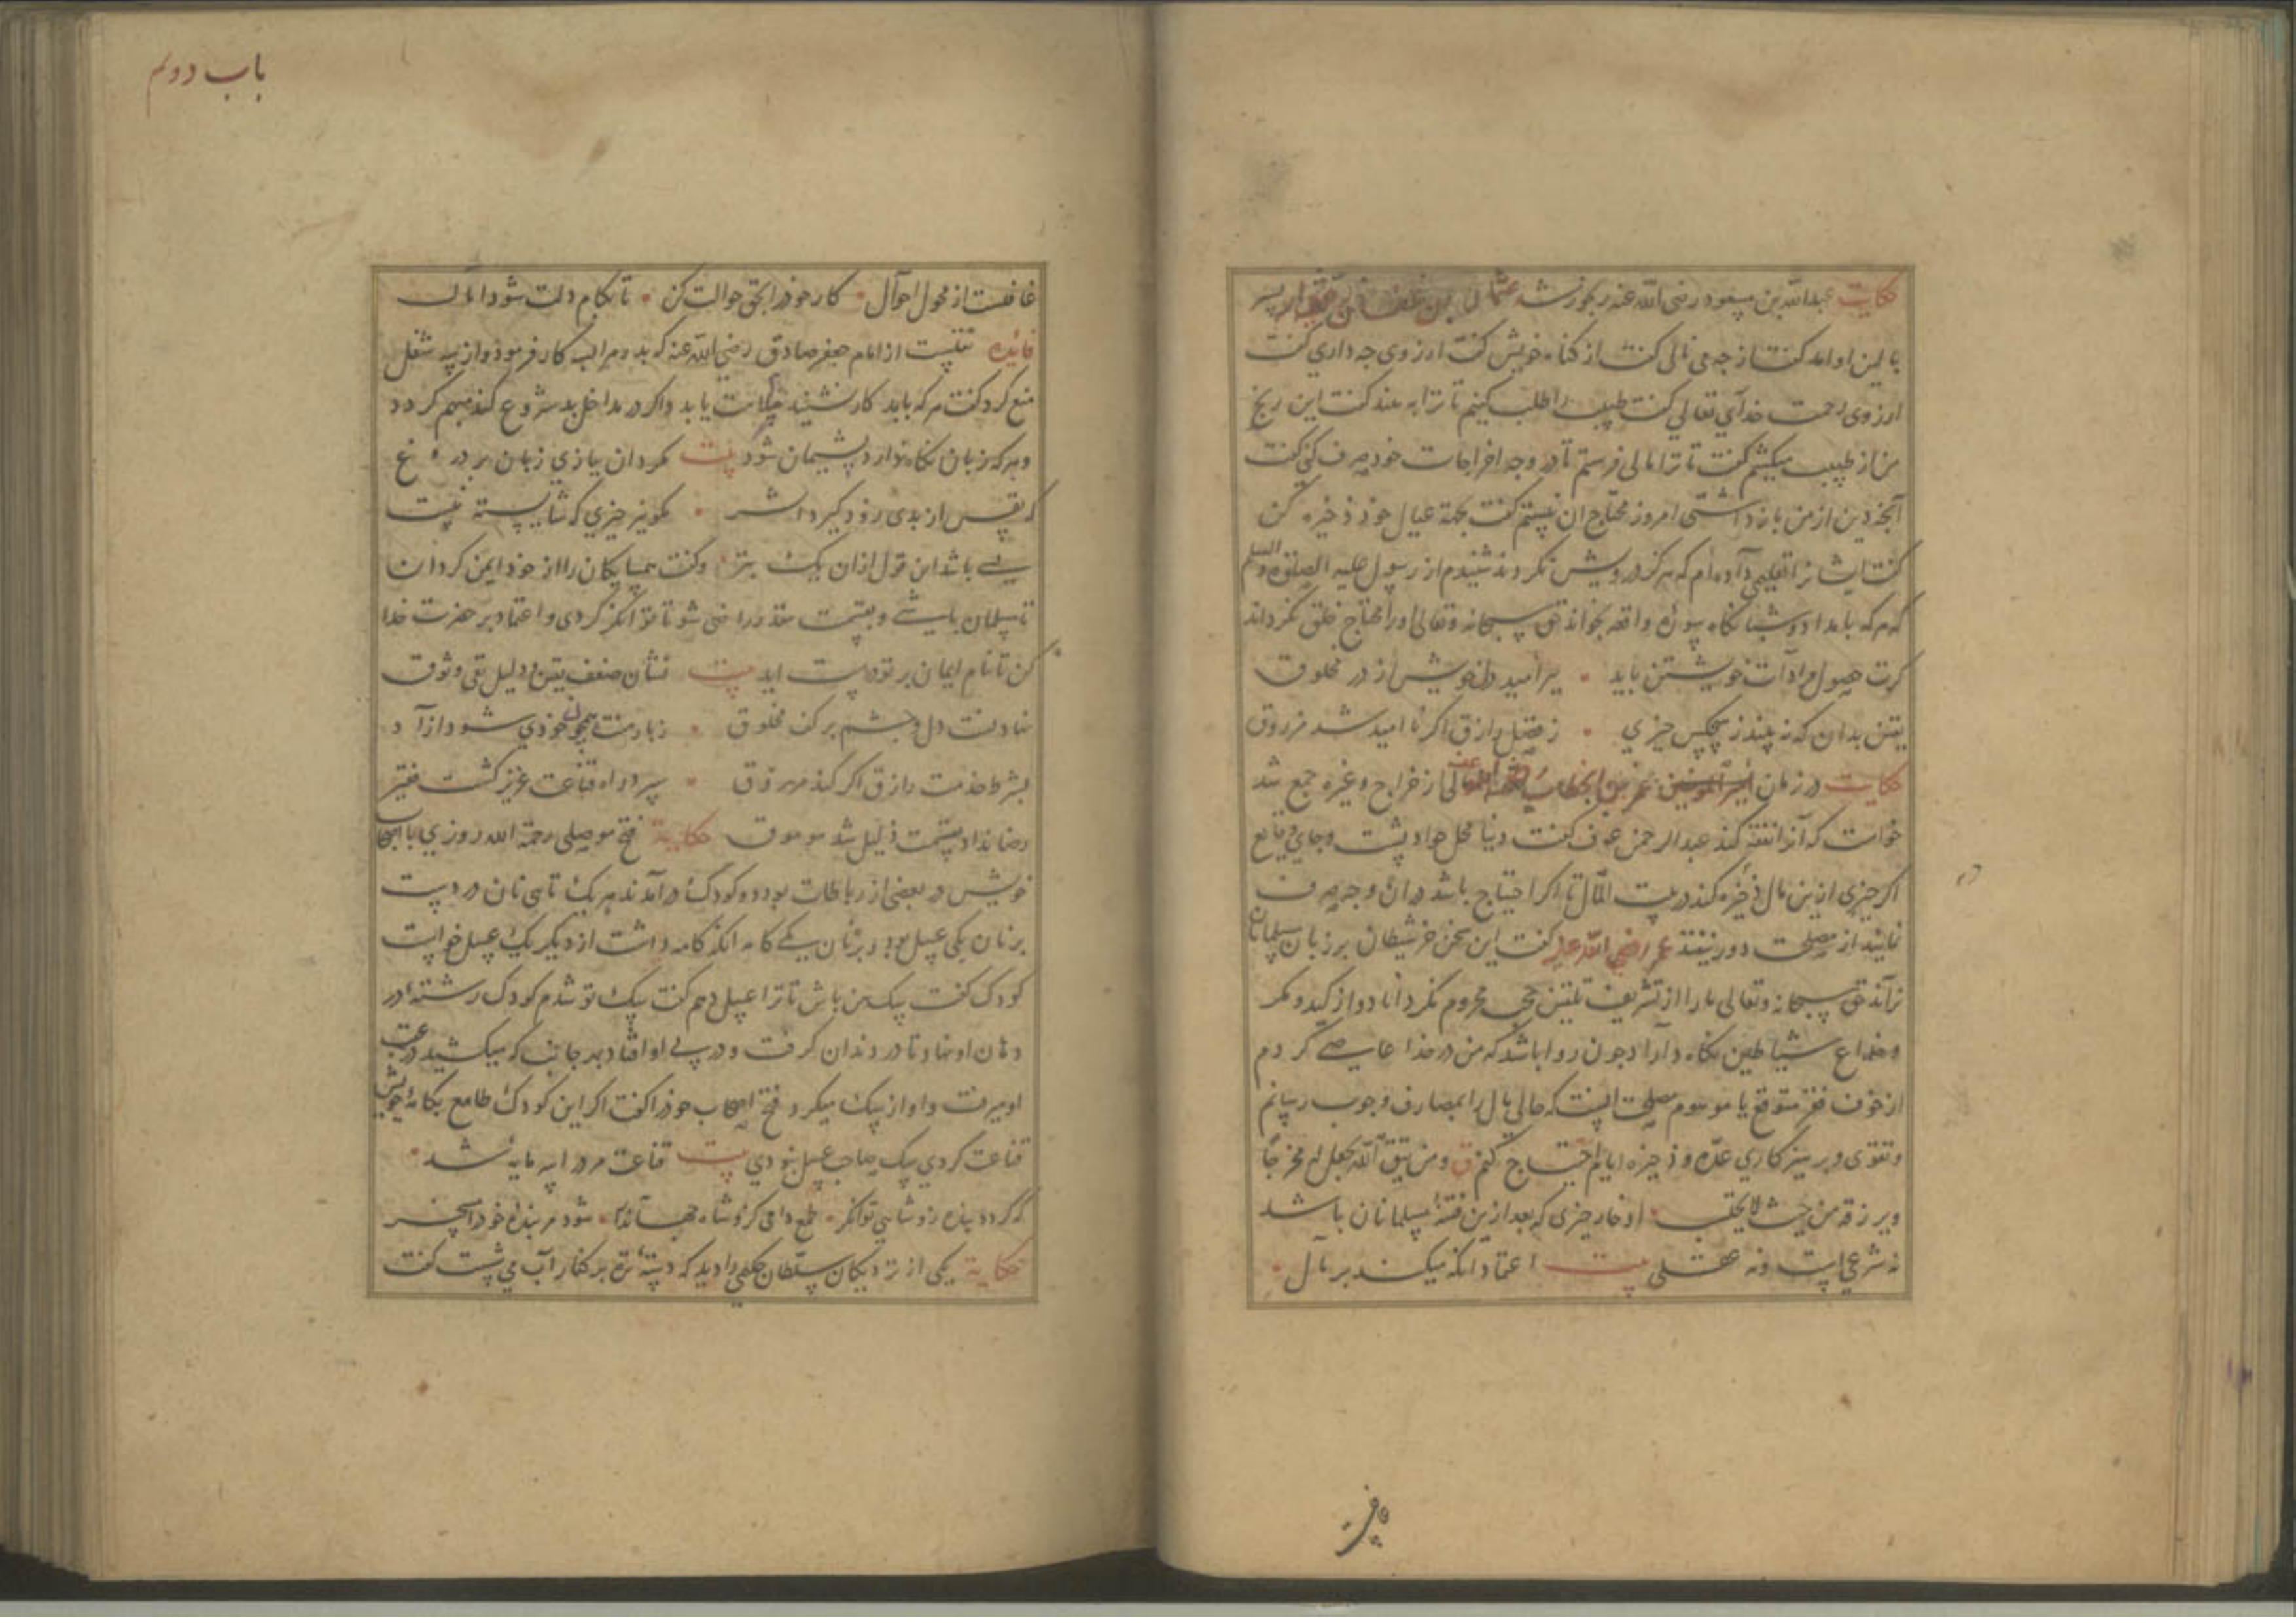 حکایت عبدالله بن مسعود رضی الله عنه رنجور شد عثمان بن عفان
بالین او امد کفت از چه می نالی کفت از کناه خویش کفت ارزوی چه داری کفت
ارزوی رحمت خدآی تعالی کفت طبیب را طلب کنیم تا ترا به بیند کفت این رنج
من از طبیب میکشم کفت تا ترا مالی فرستم تا در وجه اخراجات خود صرف کنی کفت
آنچه دین از من بازداشتی امروز محتاج ان نیستم کفت بجهة عیال خود ذخیره کن
کفت ایشانرا تعلیمی داده‌ام که هرکز درویش نکردند شنیدم از رسول علیه الصلوة والسلم
که هر که بامداد و شبانکاه سورهٔ واقعه بخواند حق سبحانه وتعالی اورا محتاج خلق نکرداند
کرت حصول مرادات خویشتن باید • ببر امید دل خویش از در مخلوق
یقین بدان که نه بیند ز هیچکس چیزی • ز فضل رازق اکر نا امید شد مرزوق
حکایت در زمان امیرالمؤمنین عمر بن الخطاب مالی از خراج و غیره جمع شد
خواست که آنرا نفقه کند عبدالرحمن عوف کفت دنیا محل حوادثست وجای وقایع
اکر چیزی ازین مال ذخیره کند در بیت المال تا اکر احتیاج باشد دران وجه صرف
نمایند از مصلحت دور نیفتد عمر رضی الله عنه کفت این سخن خر شیطان بر زبان مسلمانان
نراند حق سبحانه وتعالی ما را از تشریف تلقین حجی محروم نکرداناد و از کید و مکر
وخداع شیاطین نکاه داراد چون روا باشد که من در خدا عاصی کردم
از خوف فقر متوقع یا موهوم مصلحت انست که حالی مال را بمصارف وجوب رسانم
وتقوی وپرهیزکاری عدّه و ذخیره ایام احتیاج کنم ق ومن یتق الله یجعل له مخرجاً
ویرزقه من حیث لا یحتسب • ادخار چیزی که بعد ازین فتنهٔ مسلمانان باشد
نه شرعی است ونه عقلی بیت اعتماد انکه میکند بر مال •
غافلست از محول احوآل • کار خود را بحق حوالت کن • تا بکام دلت شود
باب دویم
غافلست
فائده نقلیست از امام جعفر صادق رضی الله عنه که بد و مرا بسه کار فرمود و از سه شغل
منع کرد کفت هر که باید کار نشیند ملامت یابد و اکر در مداخل بد شروع کند متهم کردد
وهر که زبان نکاه ندارد پشیمان شود بیت مکردان بیازی زبان بر دروغ
که نفس از بدی زود کیرد اثر • مکو نیز چیزی که شایسته نیست
بسی باشد این قول ازان یک بتر • وکفت همسایکان را از خود ایمن کردان
تا مسلمان باشی و بقسمت مقدر راضی شو تا توانکر کردی و اعتماد بر حضرت خدا
کن تا نام ایمان بر تو درست اید بیت نشان ضعف یقین و دلیل بی وثوق
نهاد لست دل و چشم بر کف مخلوق •
بشرط خدمت رازق اکر کند مرزوق • بسر در راه قناعت عزیز کشت فقیر
رضا نداد بقسمت ذلیل شد موموق حکایة فتح موصلی رحمة الله روزی با اصحاب
خویش در بعضی از رباطات بود دو کودک درآمدند هر یک تایی نان در دست
بر نان یکی عسل بود و بر نان یکی کامه انکه کامه داشت از دیکر یک عسل خواست
کودک کفت سک من باش تا ترا عسل دهم کفت سک تو شدم کودک رشتهٔ در
دهان او نهاد تا در دندان کرفت و در پی او افتاد بهر جانب که میکشید در عقب
او میرفت و اواز سک میکرد فتح اصحاب خود را کفت اکر این کودک طامع بکامهٔ خویش
قناعت کردی سک صاحب عسل نبودی بیت قناعت مر ورا سرمایه شد •
که کردد بنده زو شاهی توانکر • طمع دامی کزو شاه جهانرا • شود مر بندهٔ خود را مسخر
حکایة یکی از نزدیکان سلطان حکیمی را دید که دستهٔ تره بر کنار آب می شست کفت